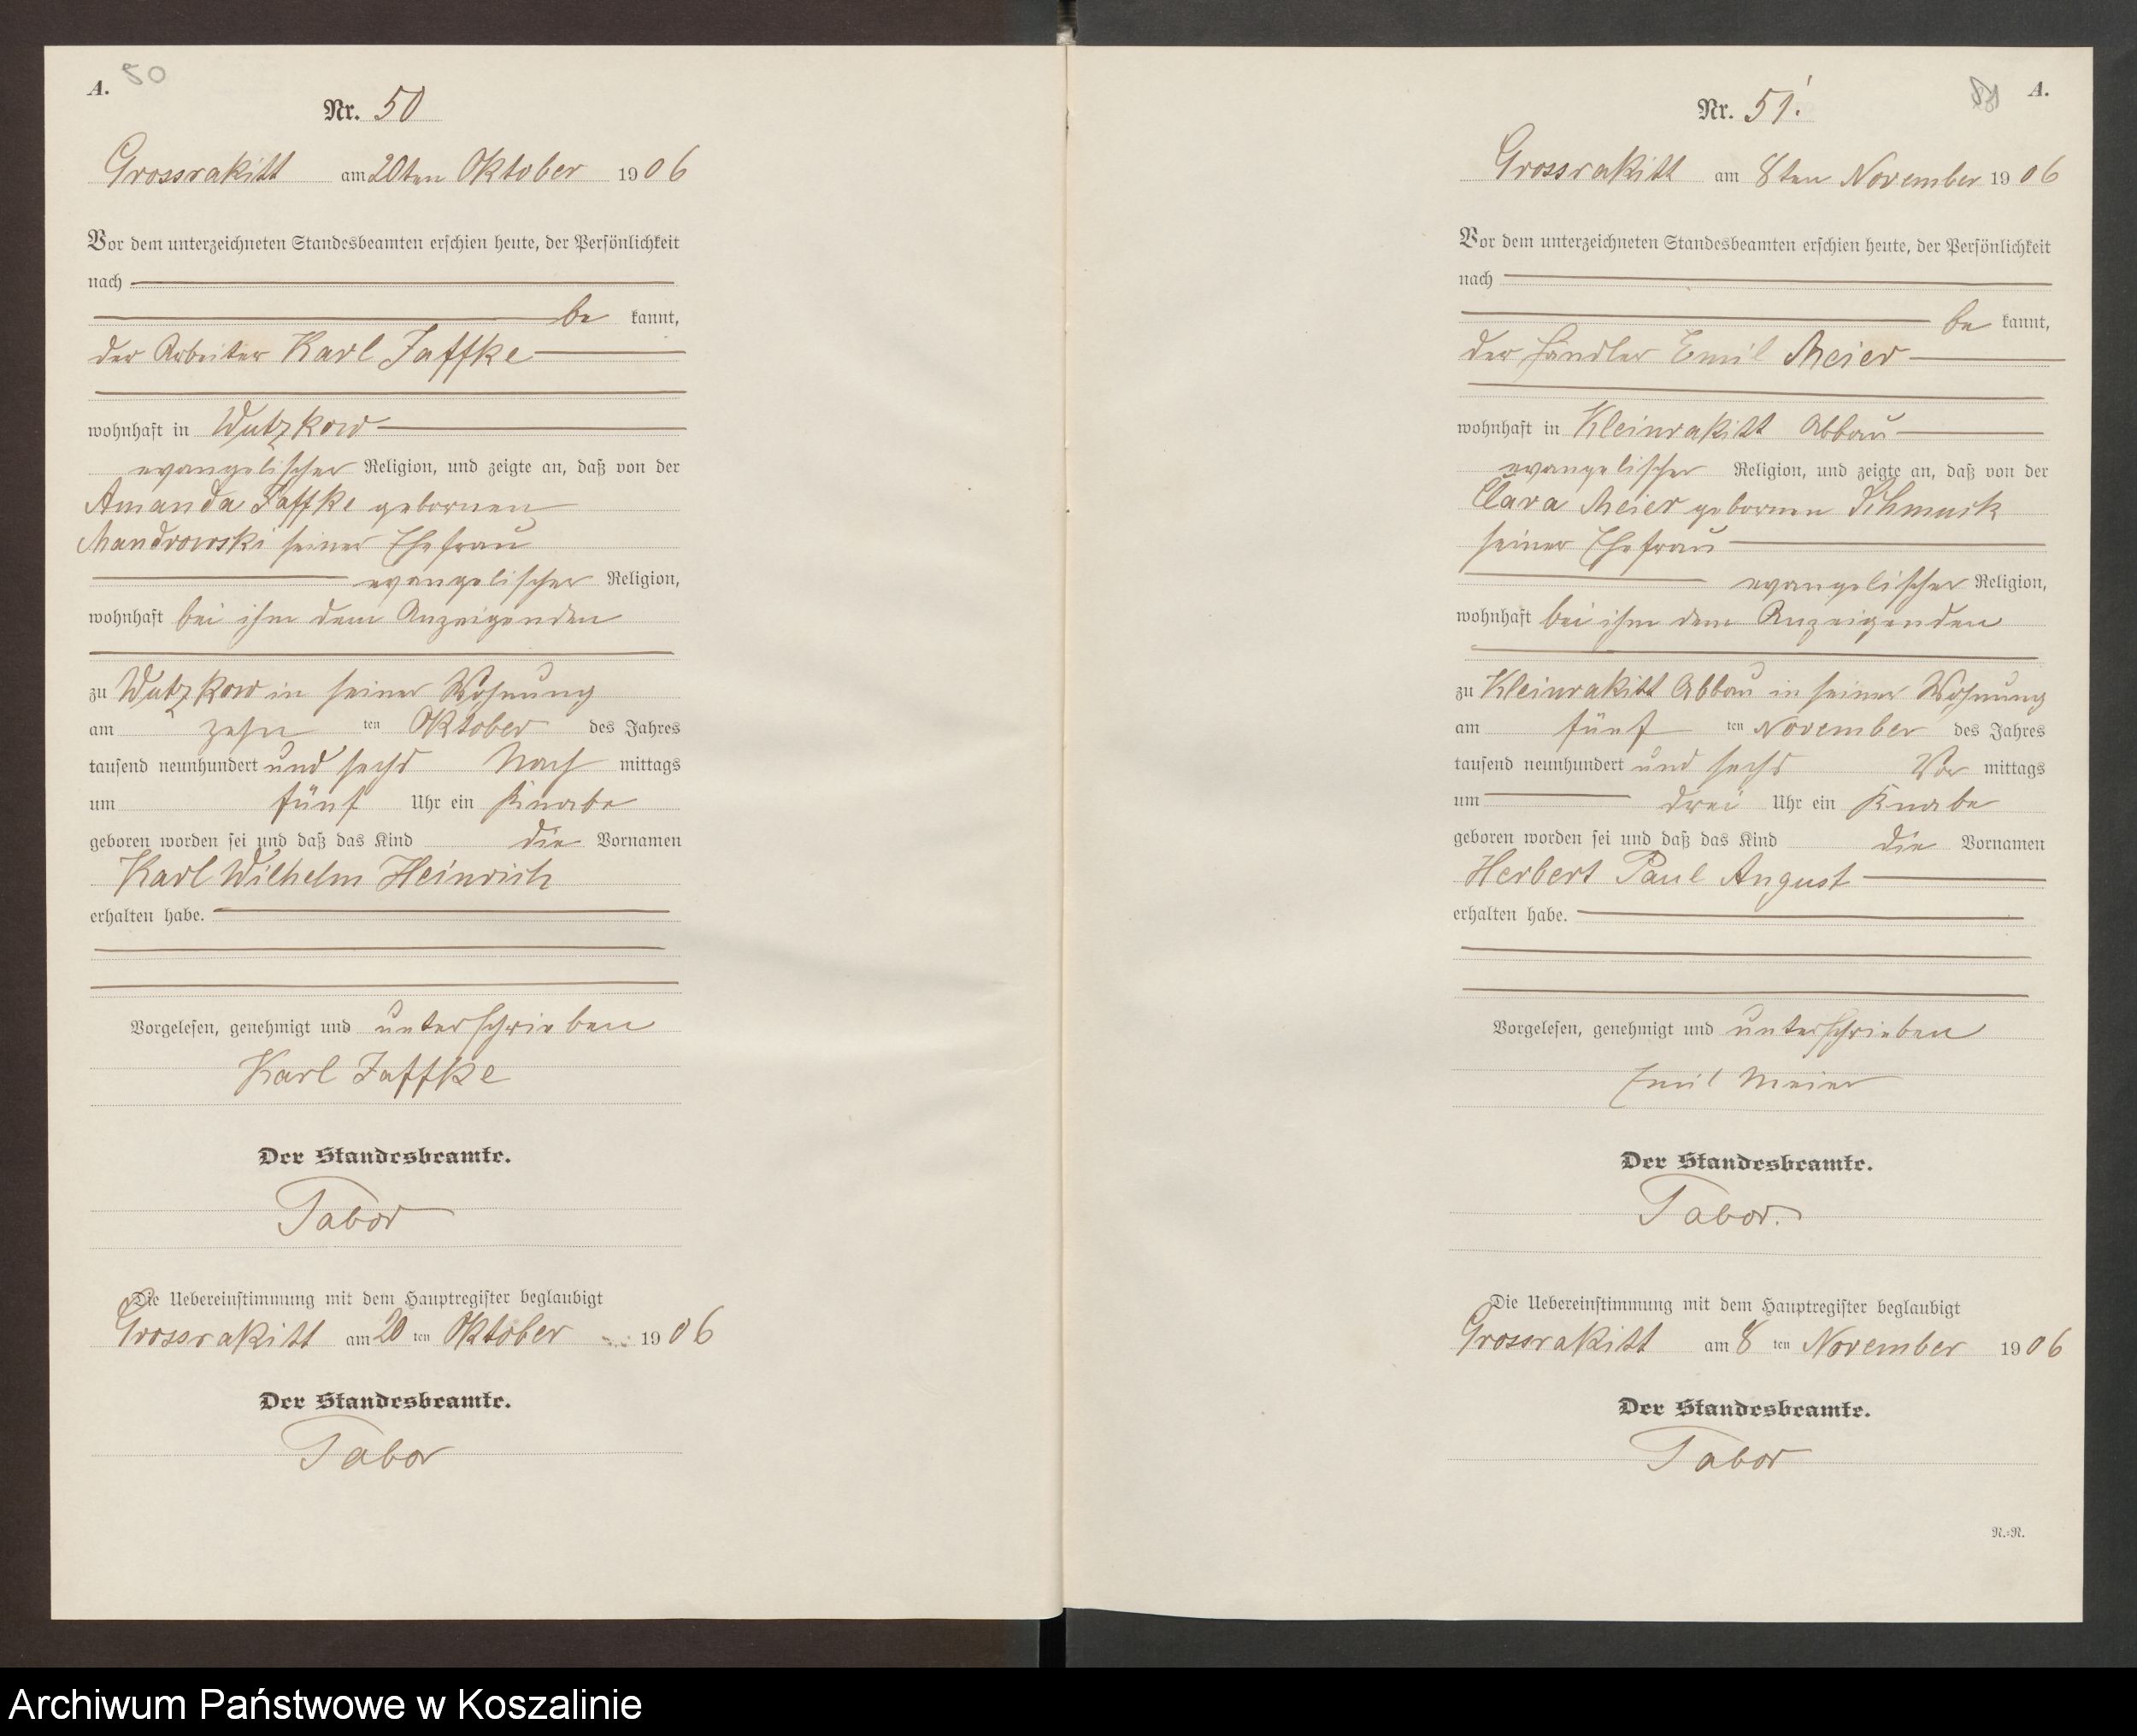 A. 50
Nr. 50
Grossrakitt am 20ten Oktober 1906
Vor dem unterzeichneten Standesbeamten erschien heute, der Persönlichkeit
nach
be kannt,
der Arbeiter Karl Jaffke
wohnhaft in Wutzkow
evangelischer Religion, und zeigte an, daß von der
Amanda Jaffke gebornen
Mandrowski seiner Ehefrau
evangelischer Religion,
wohnhaft bei ihm dem Anzeigenden
zu Wutzkow in seiner Wohnung
am zehn ten Oktober des Jahres
tausend neunhundert und sechs Nach mittags
um fünf Uhr ein Knabe
geboren worden sei und daß das Kind die Vornamen
Karl Wilhelm Heinrich
erhalten habe.
Vorgelesen, genehmigt und unterschrieben
Karl Jaffke
Der Standesbeamte.
Tabor
Die Uebereinstimmung mit dem Hauptregister beglaubigt
Grossrakitt am 20 ten Oktober 1906
Der Standesbeamte.
Tabor
A.
Nr. 51.
Grossrakitt am 8ten November 1906
Vor dem unterzeichneten Standesbeamten erschien heute, der Persönlichkeit
nach
be kannt,
der Händler Emil Meier
wohnhaft in Kleinrakitt Abbau
evangelischer Religion, und zeigte an, daß von der
Clara Meier gebornen Schmuck
seiner Ehefrau
evangelischer Religion,
wohnhaft bei ihm dem Anzeigenden
zu Kleinrakitt Abbau in seiner Wohnung
am fünf ten November des Jahres
tausend neunhundert und sechs Vor mittags
um drei Uhr ein Knabe
geboren worden sei und daß das Kind die Vornamen
Herbert Paul August
erhalten habe.
Vorgelesen, genehmigt und unterschrieben
Emil Meier
Der Standesbeamte.
Tabor.
Die Uebereinstimmung mit dem Hauptregister beglaubigt
Grossrakitt am 8 ten November 1906
Der Standesbeamte.
Tabor
N.=N.
Archiwum Państwowe w Koszalinie